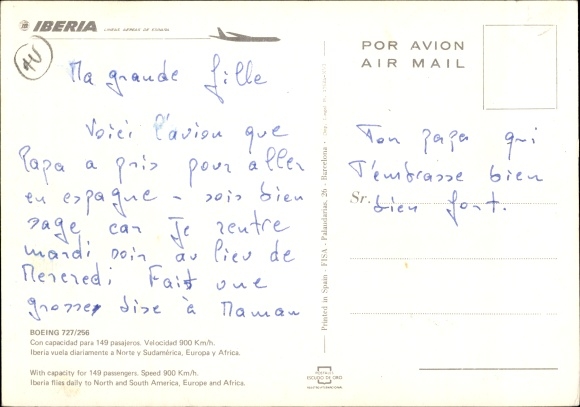 IBERIA LINEAS AEREAS DE ESPAÑA
POR AVION
AIR MAIL
Ma grande fille
Voici l'avion que
Papa a pris pour aller
en espagne - sois bien
sage car Je rentre
mardi soir au lieu de
Mercredi Fait une
grosse bise à Maman
Ton papa qui
T'embrasse bien
Sr. bien fort.
BOEING 727/256
Con capacidad para 149 pasajeros. Velocidad 900 Km/h.
Iberia vuela diariamente a Norte y Sudamérica, Europa y Africa.
With capacity for 149 passengers. Speed 900 Km/h.
Iberia flies daily to North and South America, Europe and Africa.
Printed in Spain - FISA - Palaudarias, 26 - Barcelona
POSTALES
ESCUDO DE ORO